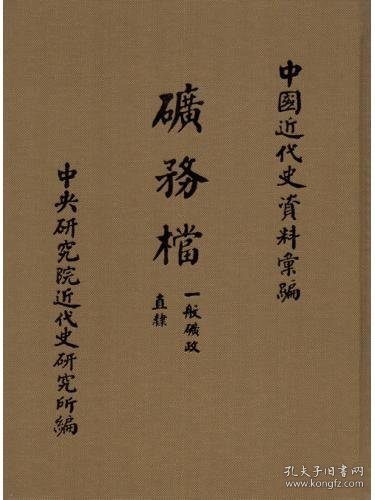 中國近代史資料彙編
礦務檔
一般礦政
直隸
中央研究院近代史研究所編
孔夫子旧书网
www.kongfz.com